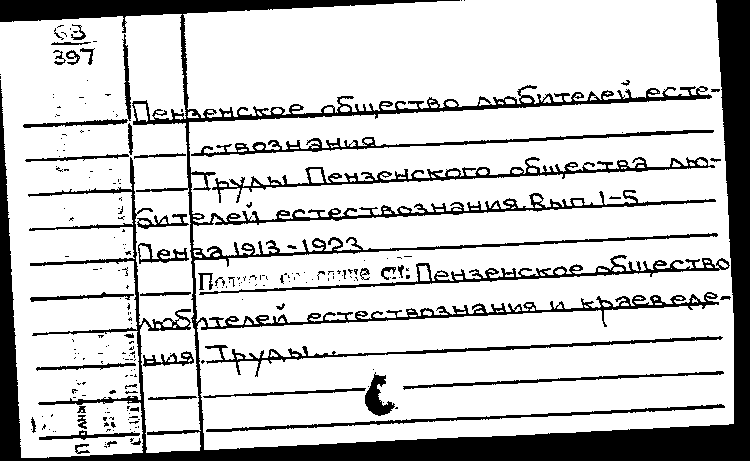 63
397
Пензенское общество любителей есте-
ствознания.
Труды Пензенского общества лю-
бителей естествознания. Вып. 1-5
Пенза, 1913-1923.
Полное описание см: Пензенское общество
любителей естествознания и краеведе-
ния. Труды...